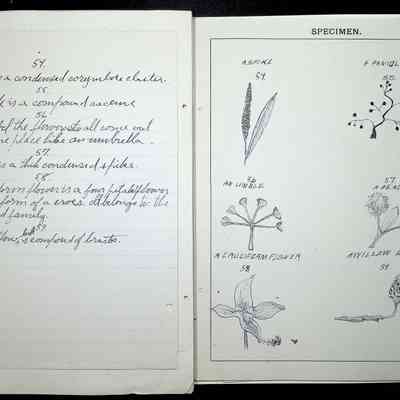 54.
a condensed corymbose cluster.
55.
is a compound raceme
56
all the flowerets all come out
place like an umbrella.
57.
a thick condensed spike.
58.
flower is a four petal flower
form of a cross. It belongs to the
family.
59
is compound of bracts.
SPECIMEN.
A SPIKE
54.
A PANICL
55.
AN UMBLE
56
57.
A HEAD
A CRUCIFORM FLOWER
58
A WILLOW
59